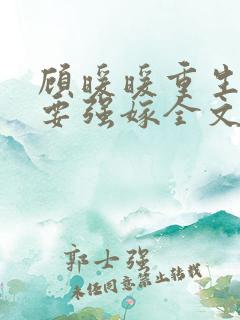 顾暖暖重生
要强嫁全文
郭士强
未经同意禁止转载